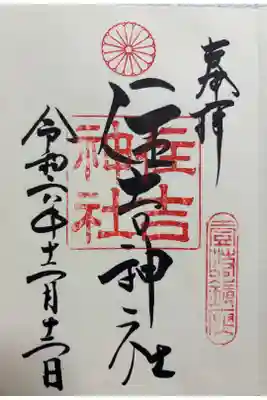 奉拝
住吉神社
住吉
神社
令和六年十二月十二日